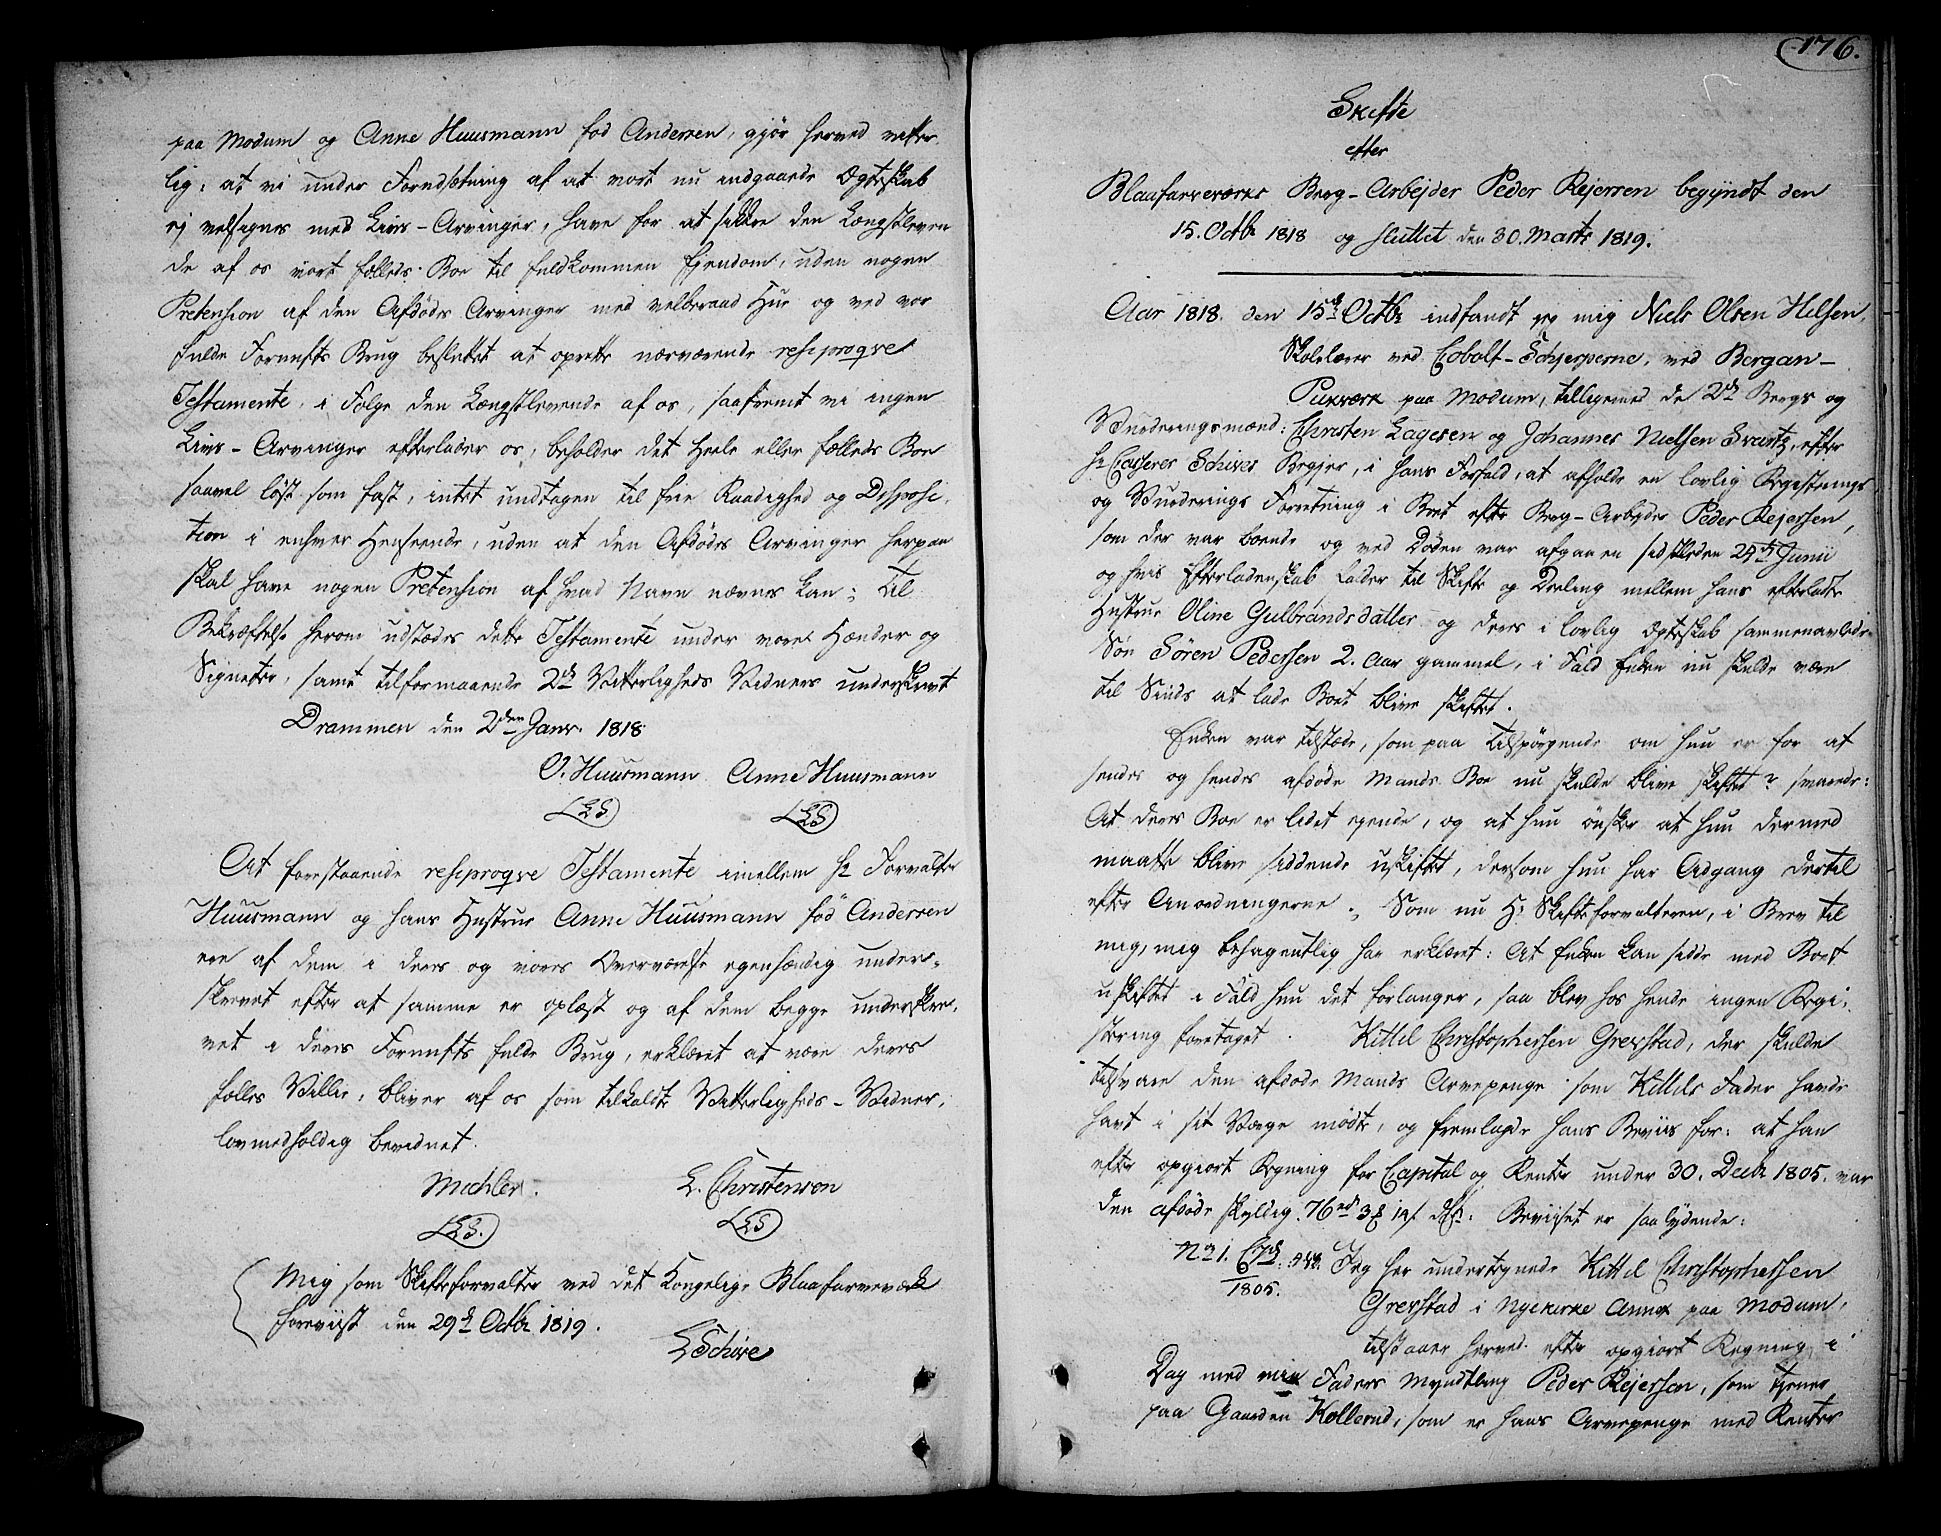 paa Modum og Anne Huusmann fød Andersen, gjør herved vitter-
lig: at vi under Forudsætning af at vort nu indgaaede Ægteskab
ej velsignes med Livs-Arvinger, have for at sikkre den Længstleven
de af os vort fælleds Boe til fuldkommen Ejendom, uden nogen
Pretension af den Afdødes Arvinger med velberaad Hue og ved vor
fulde Fornufts Brug besluttet at oprette nærværende resiproqve
Testamente, i Følge den Længstlevende af os, saafremt vi ingen
Livs-Arvinger efterlader os, beholder det heele eller fælleds Boe
saavel løst som fast, intet undtagen til frie Raadighed og Disposi-
tion i enhver Henseende, uden at den Afdødes Arvinger herpaa
skal have nogen Pretension af hvad Navn nævnes kan; Til
Bekræftelse herom udstædes dette Testamente under vore Hænder og
Signeter, samt tilformaaende 2de Vitterligheds Vidners underskrivt
Drammen den 2den Janr. 1818.
O. Huusmann Anne Huusmann
(LS.) (LS)
At forestaaende resiproqve Testamente imellem Hr Forvalter
Huusmann og hans Hustrue Anne Huusmann fød Andersen
ere af dem i deres og vores Overværelse egenhændig under-
skrevet efter at samme er oplæst og af dem begge underskre-
vet i deres Fornufts fulde Brug, erklæret at være deres
fælles Villie, bliver af os som tilkaldte Vitterligheds-Vidner,
lovmedholdig bevidnet.
Mechler. L. Christenson
(LS.) (LS)
Mig som Skifteforvalter ved det Kongelige Blaafarveværk
foreviist den 29de Octbr 1819.
LSchive
176.
Skifte
efter
Blaafarveværks Berg-Arbejder Peder Rejersen begyndt den
15. Octbr 1818 og sluttet den 30. Marts 1819.
Aar 1818. den 15de Octbr indfandt jeg mig Niels Olsen Hilsen,
Skolelærer ved Cobolt-Schjerperne, ved Bergan-
Pukværk paa Modum, tilligemed de 2de Bergs og
Vurderingsmænd: Christen Lagesen og Johannes Nielsen Svartz, efter
Hr Casserer Schives Begjer, i hans Forfald, at afholde en lovlig Registerings
og Vurderings Forretning i Boet efter Berg-Arbejder Peder Rejersen,
som der var boende og ved Døden var afgaaen sidstleden 24de Junii
og hvis Efterladenskab falder til Skifte og Deeling mellem hans efterladte
Hustrue Oline Gulbrandsdatter og deres i lovlig Ægteskab sammenavlede
Søn Søren Pedersen 2. Aar gammel, i Fald Enken nu skulde være
til Sinds at lade Boet blive skiftet.
Enken var tilstæde, som paa Tilspørgende om hun er for at
hendes og hendes afdøde Mands Boe nu skulde blive skiftet? svarede:
At deres Boe er lidet ejende, og at hun ønsker at hun dermed
maatte blive siddende uskiftet, dersom hun har Adgang dertil
efter Anordningerne. Som nu H: Skifteforvalteren, i Brev til
mig, mig behagentlig har erklæret: At Enken kan sidde med Boet
uskiftet i Fald hun det forlanger, saa blev hos hende ingen Regi-
strering foretaget. Kittil Christophersen Grevstad, der skulde
tilsvare den afdøde Mands Arvepenge som Kittils Fader havde
havt i sit Værge mødte, og fremlagde hans Beviis for: at han
efter opgiort Regning for Capital og Renter under 30. Decbr 1805. var
den afdøde skyldig. 76rd 3 14s. dC: Beviset er saa lydende:
No 1. C7de.
1805.
Jeg her undertegnede Kittil Christophersen
Grevstad i Nyekirke Annex paa Modum,
tilstaaer herved efter opgiort Regning i
Dag med min Faders Myndtling Peder Rejersen, som tjener
paa Gaarden Kollerud, som er hans Arvepenge med Renter